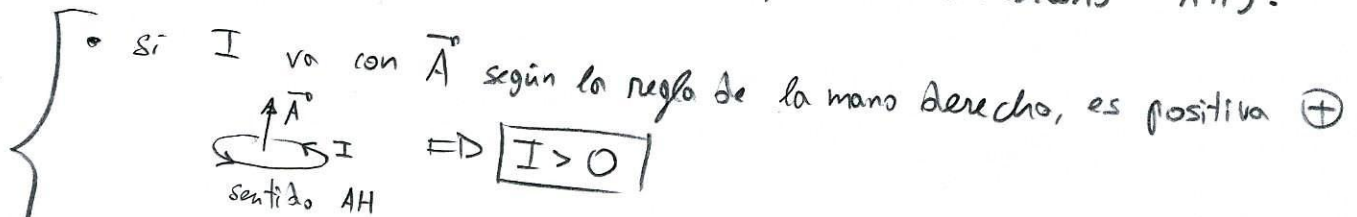 • si I va con A⃗ según la regla de la mano derecha, es positiva ⊕
A⃗
I ⇒ I > 0
sentido AH